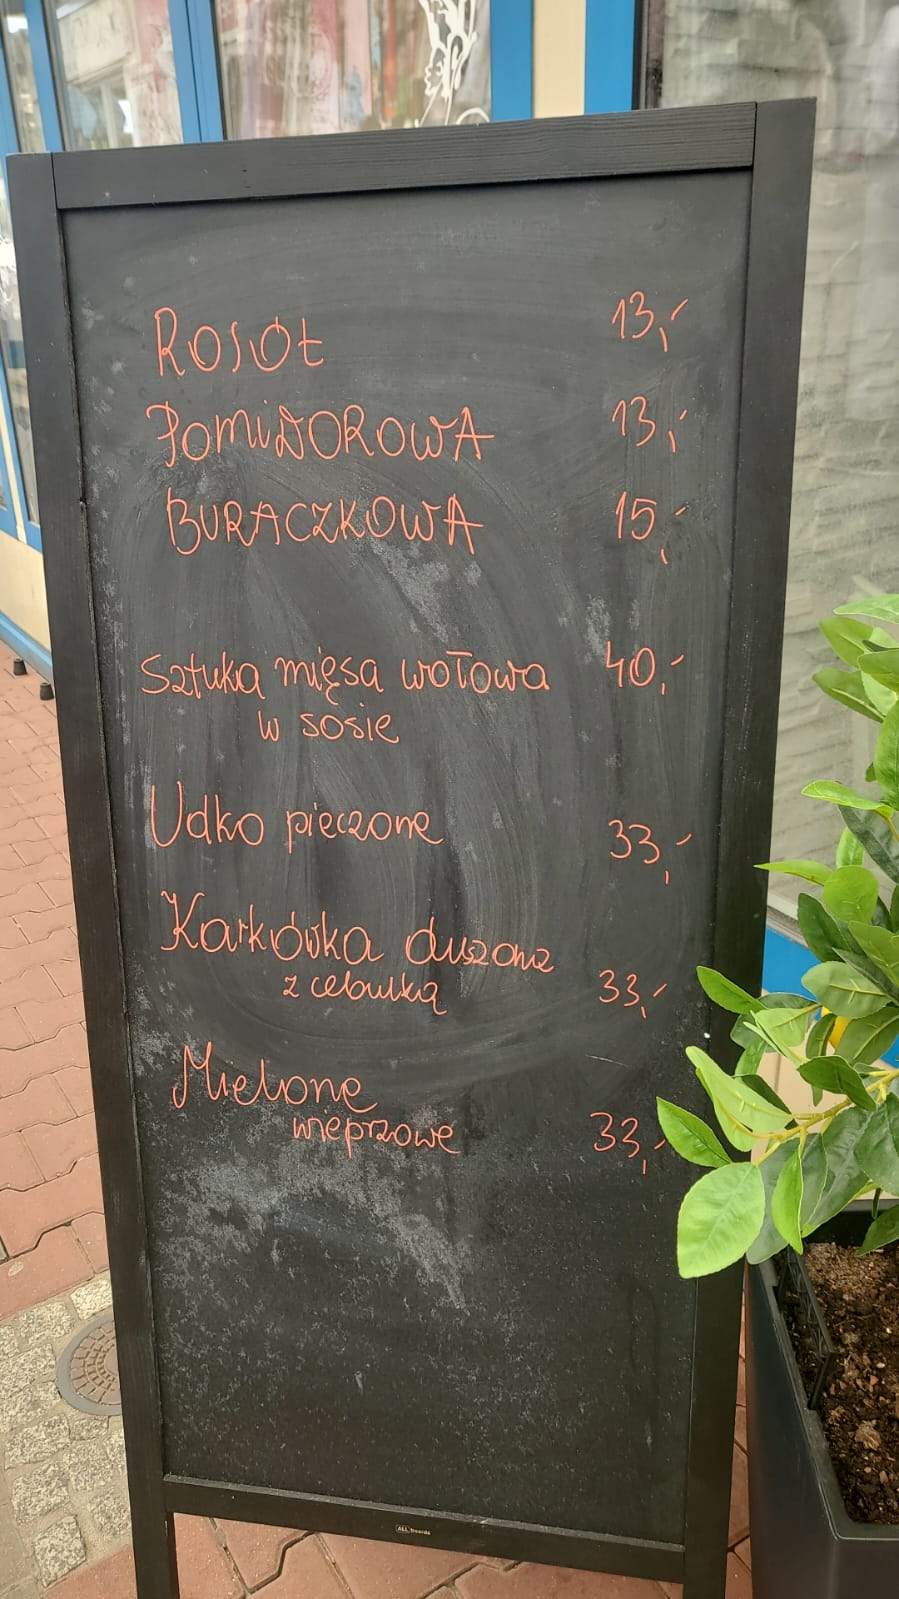 ROSÓŁ 13,-
POMIDOROWA 13,-
BURACZKOWA 15,-
Sztuka mięsa wołowa 40,-
w sosie
Udko pieczone 33,-
Karkówka duszona
z cebulką 33,-
Mielone
wieprzowe 33,-
ALLboards